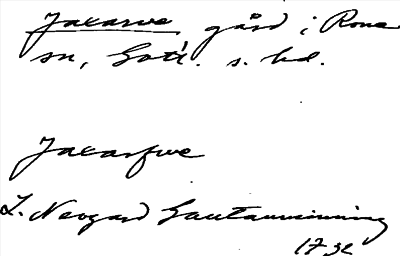 Jakarve gård i Rone
sn, Gotl. s. hd.
Jakarfve
L. Neogard Gautauminning
1732